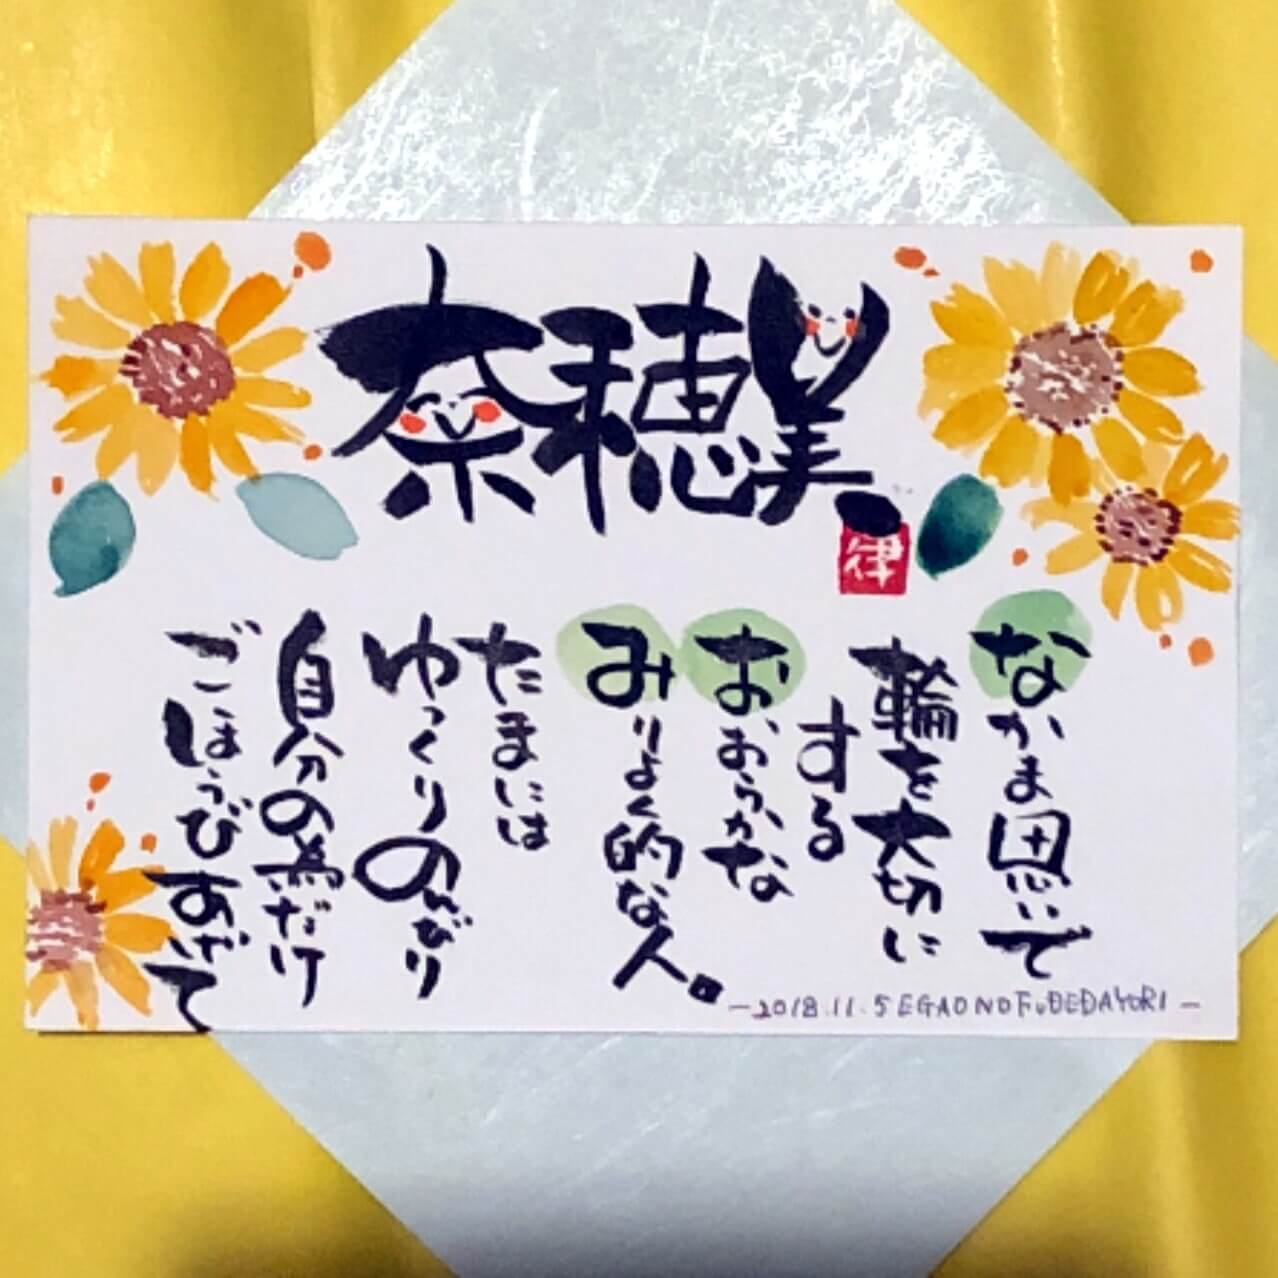 奈穂美
律
なかま思いで
輪を大切に
する
おおらかな
みりょく的な人。
たまには
ゆっくりのんびり
自分の為だけ
ごほうびあげて
-2018.11.5 EGAO NO FUDEDAYORI-